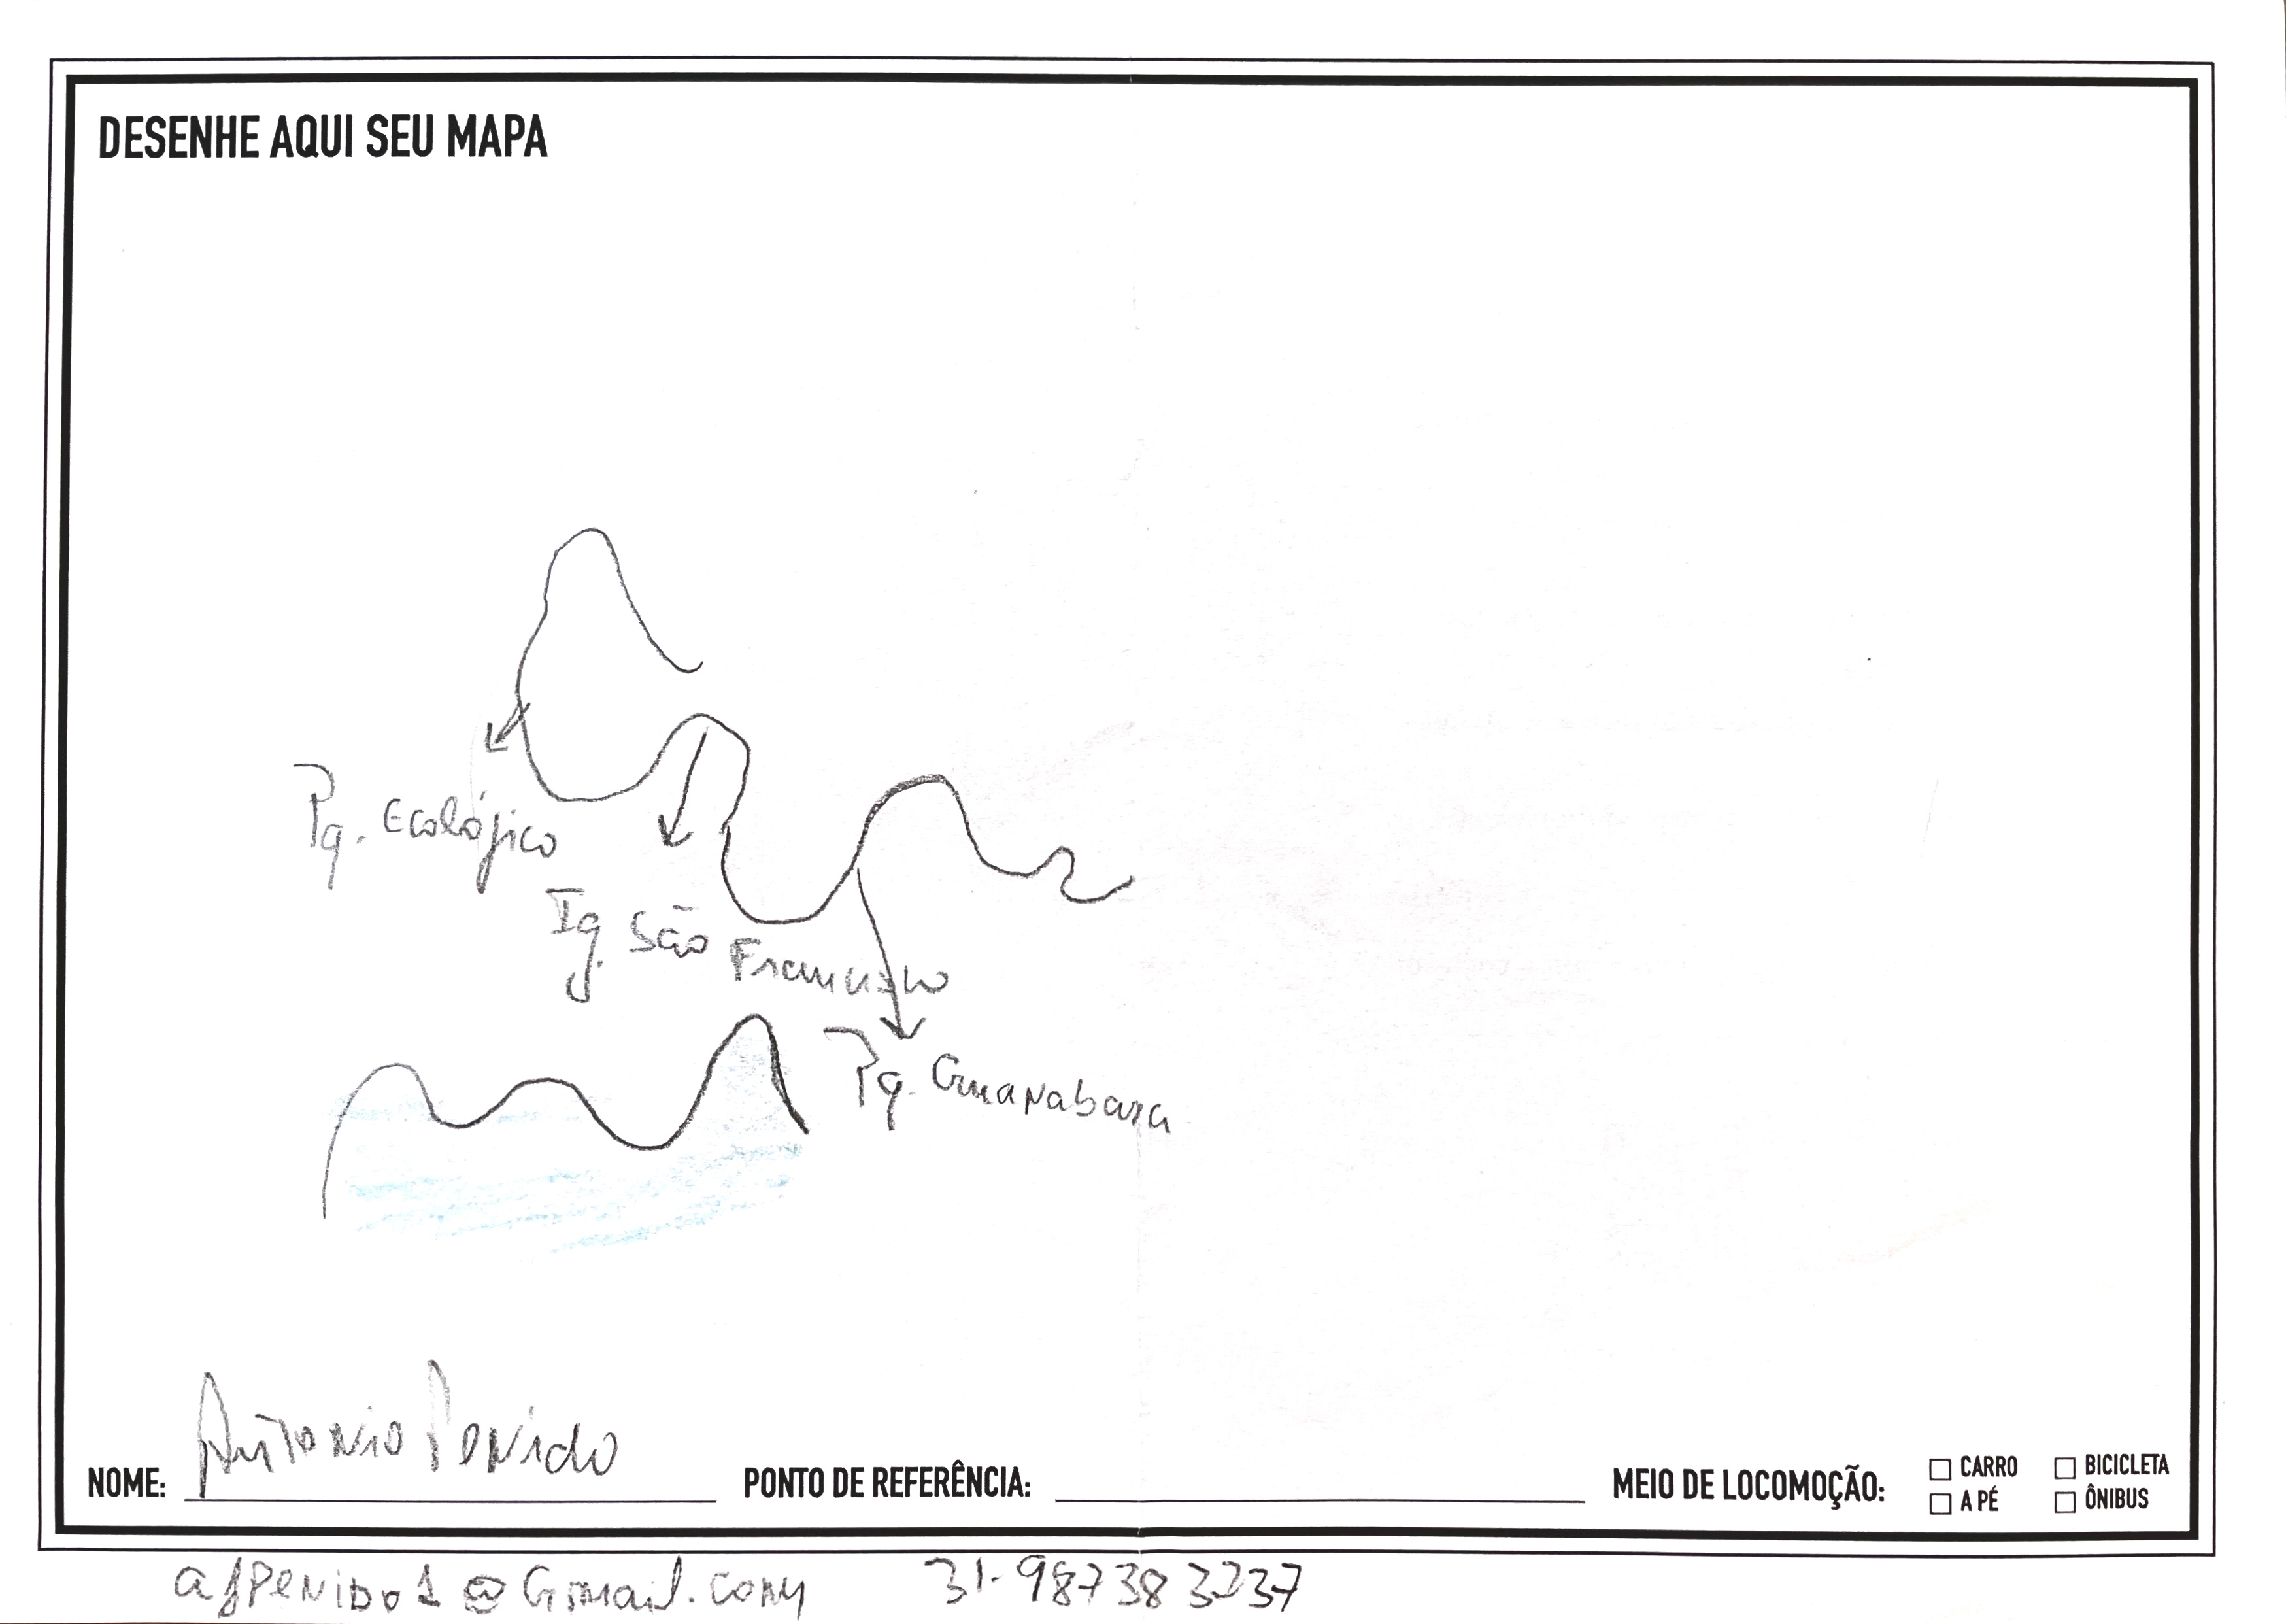 DESENHE AQUI SEU MAPA
Pq. Ecológico
Ig. São Francisco
Pq. Guanabara
NOME: Antonio Penido
PONTO DE REFERÊNCIA:
MEIO DE LOCOMOÇÃO:
CARRO
BICICLETA
A PÉ
ÔNIBUS
afpenido1@Gmail.com 31-98738 3237